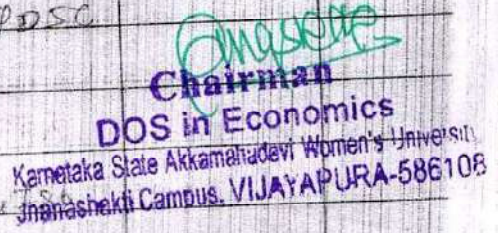 PDSC
Chairman
DOS in Economics
Karnataka State Akkamahadevi Women's University
Jnanashakti Campus, VIJAYAPURA-586108